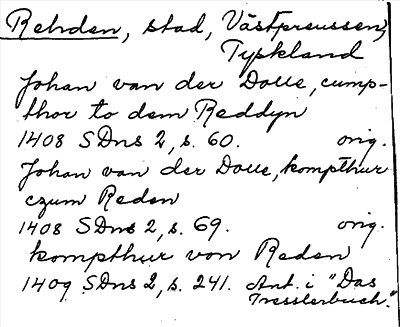 Rehden, stad, Västpreussen,
Tyskland
Johan van der Dolle, cump-
thor to dem Reddyn
1408 SDns 2, s. 60. orig.
Johan van der Dolle, kompthur
czum Reden
1408 SDns 2, s. 69. orig.
kompthur von Reden
1409 SDns 2, s. 241. Ant. i "Das
Tresslerbuch."